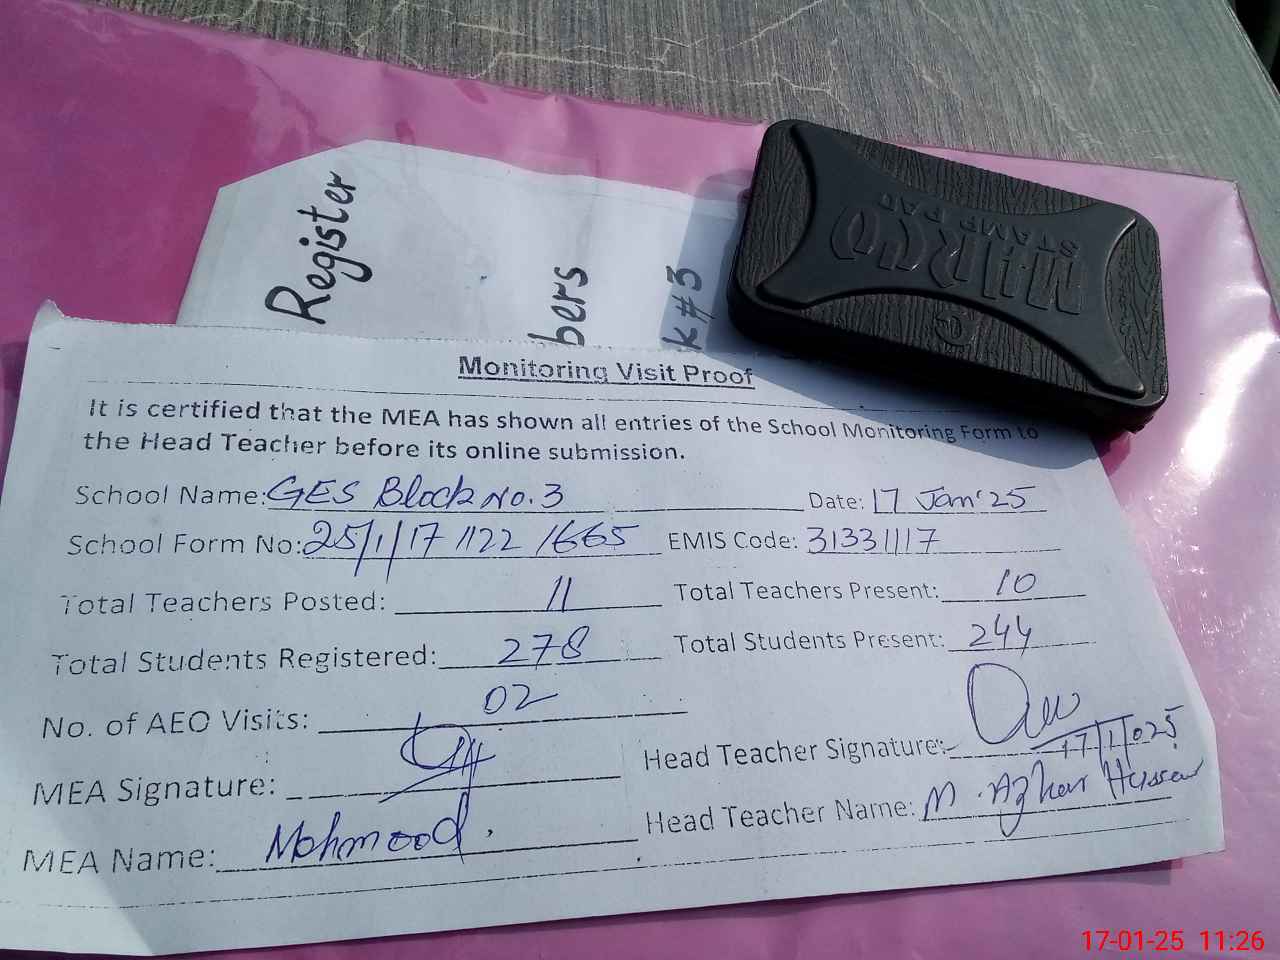 Register
bers
k #3
MARCO
STAMP PAD
Monitoring Visit Proof
It is certified that the MEA has shown all entries of the School Monitoring Form to
the Head Teacher before its online submission.
School Name: GES Block No. 3 Date: 17 Jan'25
School Form No: 25/1/17 1122 1665 EMIS Code: 31331117
Total Teachers Posted: 11 Total Teachers Present: 10
Total Students Registered: 278 Total Students Present: 244
No. of AEO Visits: 02
MEA Signature: Head Teacher Signature: 17/1/025
MEA Name: Mahmood. Head Teacher Name: M. Azhar Hussain
17-01-25 11:26